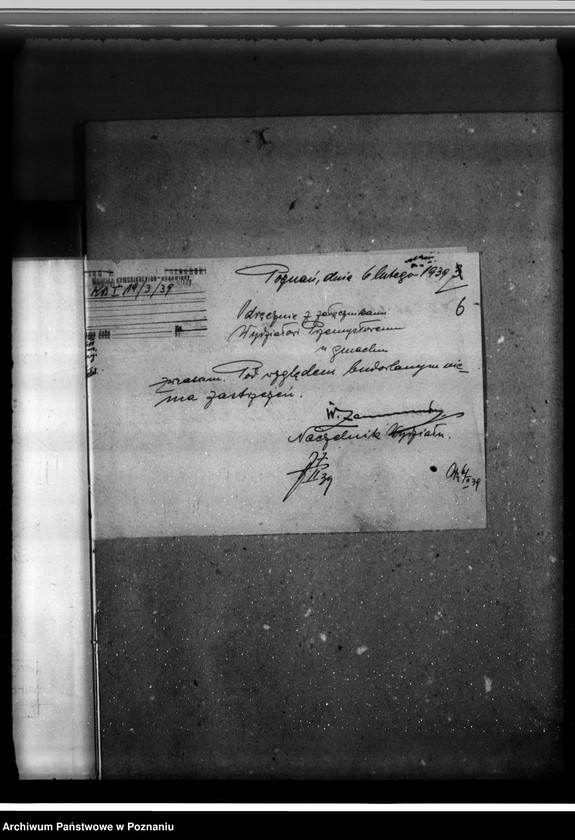 Poznań, dnia 6 lutego 1939
3
6
KAT 19/3/39
Odręcznie z załącznikami
Wydziałowi Przemysłowemu
w gmachu
zwracam. Pod względem budowlanym nie-
ma zastrzeżeń.
Naczelnik Wydziału.
7
II 39
6/II 39
Archiwum Państwowe w Poznaniu